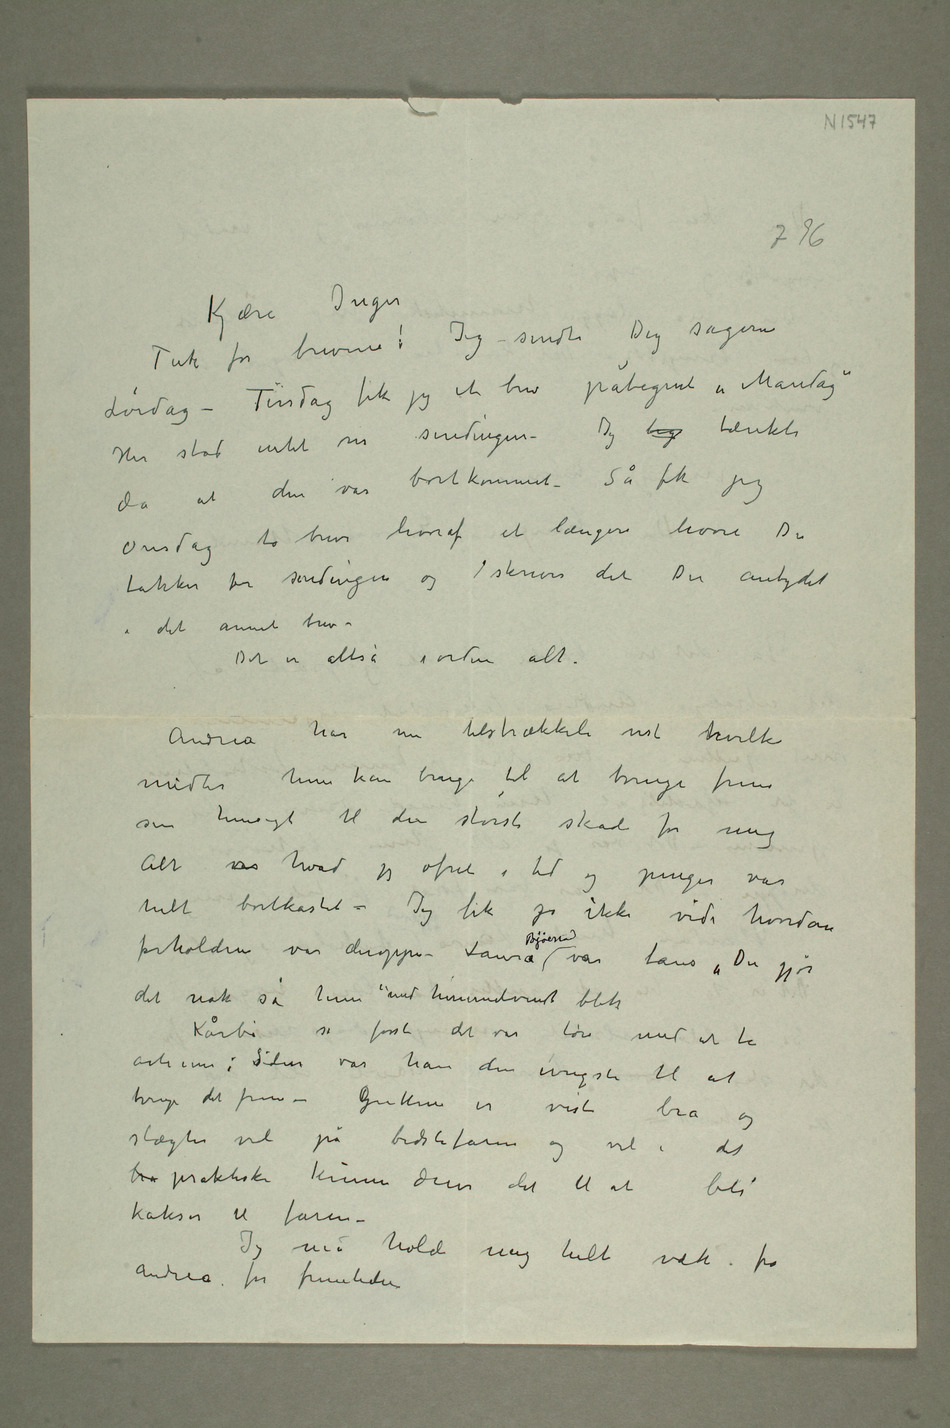 N1547
7 96
Kjære Inger
Tak for brevene! Jeg sendte Dig sagerne
Lørdag – Tirsdag fik jeg et brev påbegynt „Mandag"
Her stod intet om sendingen – Jeg tænkte
da at den var bortkommet – Så fik jeg
Onsdag to breve hvoraf et længere hvore Du
takker for sendingen og skriver det Du antydet
i det annet brev –
Det er altså i orden alt.
Andrea har nu tilstrækkeli vist hvilke
midler hun kan bruge til at bringe frem
sin hensigt til den største skade for mig
Alt var hvad jeg ofret i tid og penger var
helt bortkastet – Jeg fik jo ikke vide hvordan
forholdene var deroppe – Laura Bjølstad var taus „Du gjør
det nok så hun" med himmelvendt blik
Kårbø sa først det var tøv med at ta
artium; Siden var han den ivrigste til at
bringe det frem – Gutten er visst bra og
slægter vel på bedstefaren og vel i det
bra praktiske kunne drive det til at bli
kakser til faren –
Jeg må holde mig helt væk fra
Andrea for fremtiden